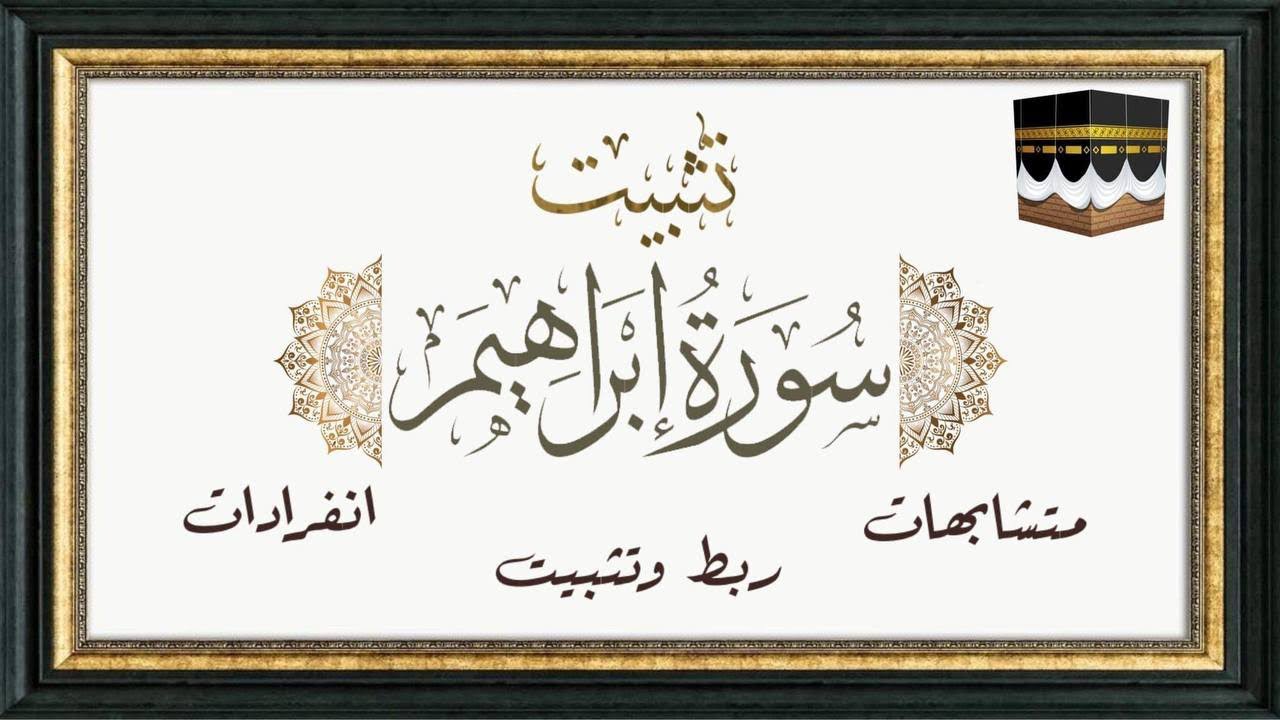 تثبيت
سُورَةُ إِبْرَاهِيمَ
متشابهات
انفرادات
ربط وتثبيت